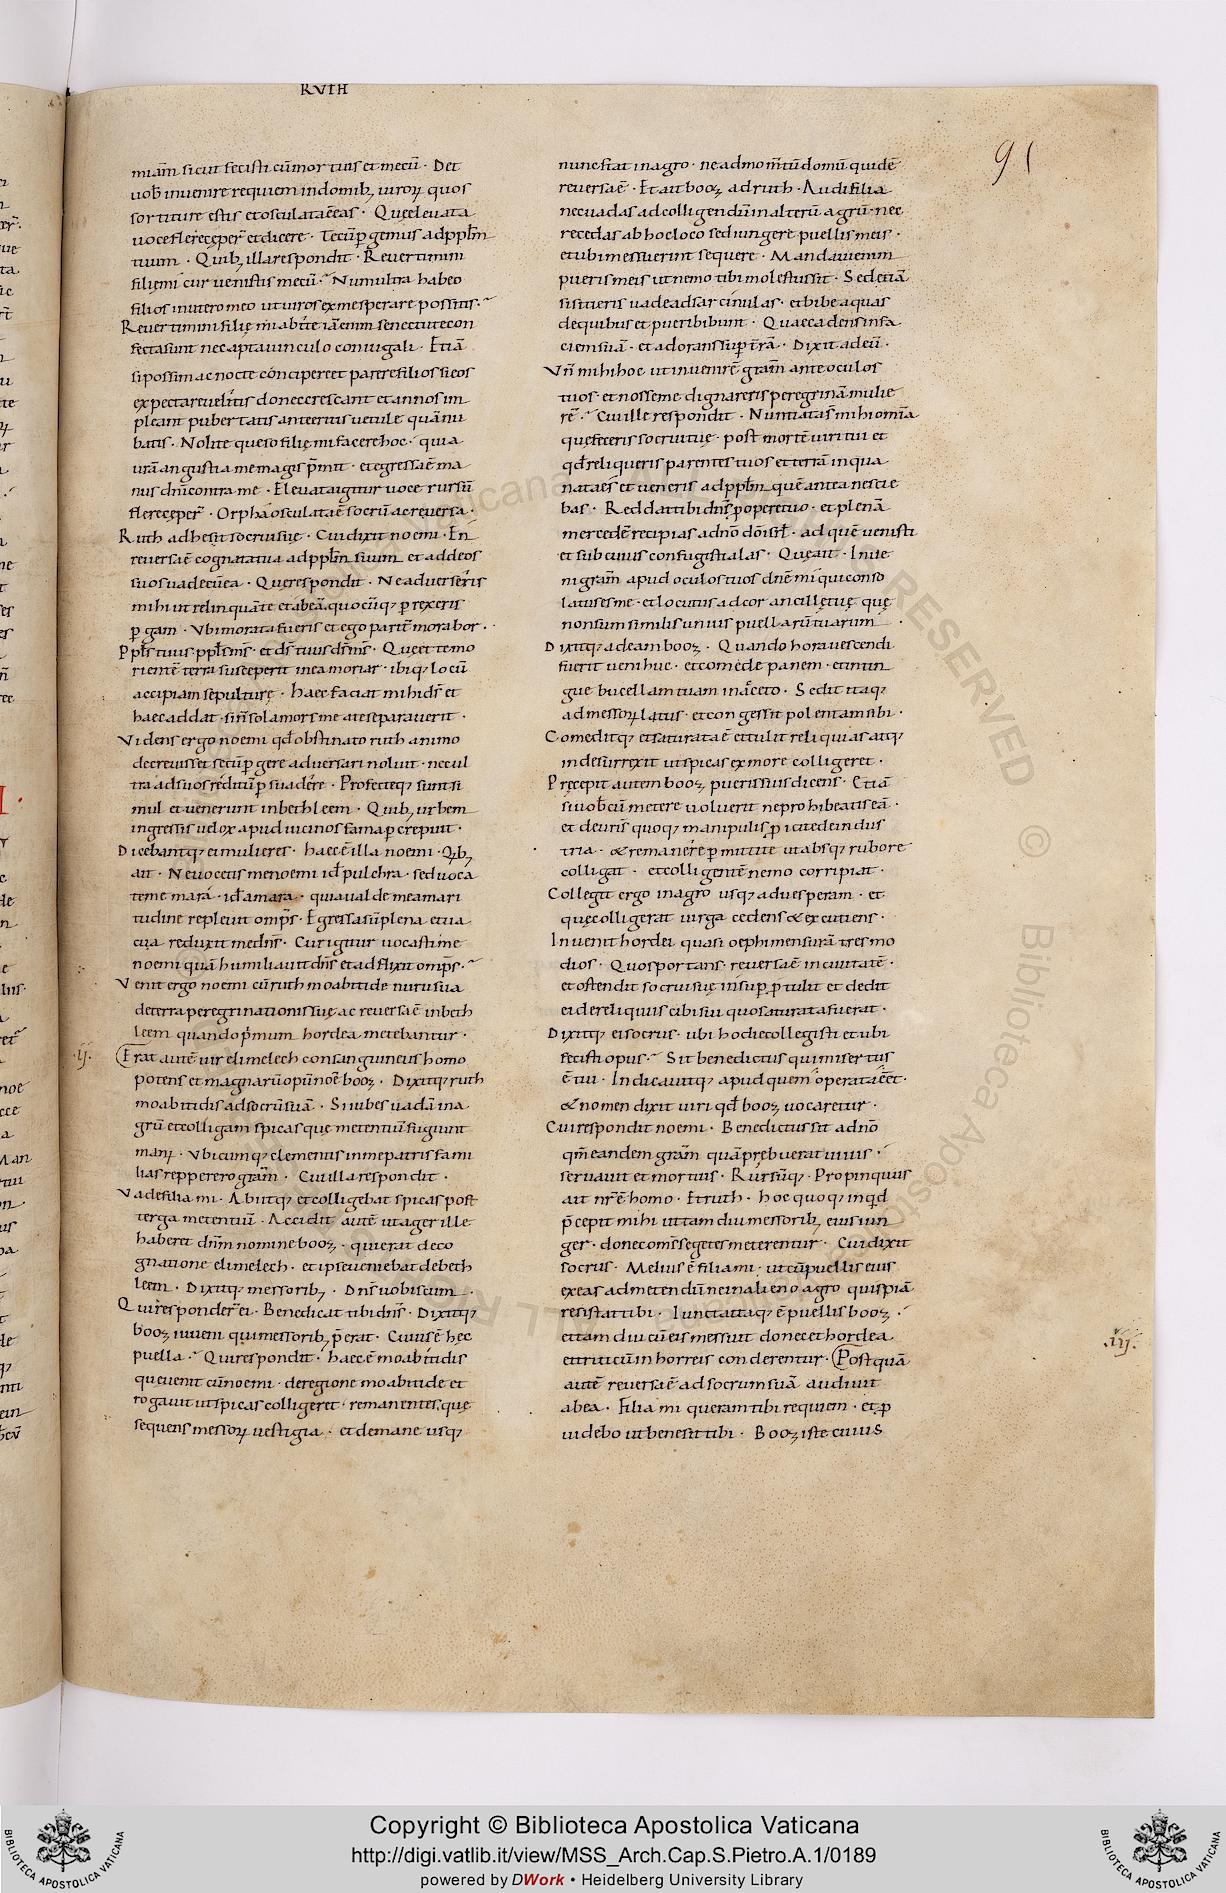 RVTH
91
miam̄ sicut fecisti cū mortuis et mecū · Det
uob̄ inuenire requiem in domib; uiroꝝ quos
sortiture estis et osculata ē eas · Quę eleuata
uoce flere cęper̄ et dicere · Tecū ꝑgemus ad ppl̄m
tuum · Quib; illa respondit · Reuertimini
filię mi cur uenistis mecū · Num ultra habeo
filios in utero meo ut uiros ex me sperare possitis ·
Reuertimini filię mi abite iā enim senectute con
fecta sunt nec apta uinculo coniugali · Etiā
si possim ac nocte concipere et parere filios si eos
expectare uelitis donec crescant et annos im
pleant pubertatis ante eritis uetule quā nu
batis · Nolite queso filię mi facere hoc · quia
ur̄a angustia me magis p̄mit · et egressa ē ma
nus dn̄i contra me · Eleuata igitur uoce rursū
flere cęper̄ · Orpha osculata ē socrū ac reuersa ·
Ruth adhesit socrui suę · Cui dixit noemi · En̄
reuersa ē cognata tua ad ppl̄m suum et ad deos
suos uade cū ea · Quę respondit · Ne aduerseris
mihi ut relinquā te et abeā quocūq; ꝑrexeris
ꝑgam · Vbi morata fueris et ego parit̄ morabor ·
Ppl̄s tuus ppl̄s m̄s · et ds̄ tuus ds̄ m̄s · Quę te mo
rientē terra susceperit in ea moriar · ibiq; locū
accipiam sepulturę · haec faciat mihi ds̄ et
haec addat · si n̄ sola mors me a te separauerit ·
Videns ergo noemi qd̄ obstinato ruth animo
decreuisset secū ꝑgere aduersari noluit · nec ul
tra ad suos reditū ꝑsuadere · Profectęq; sunt si
mul et uenerunt in bethleem · Quib; urbem
ingressis uelox apud uicinos fama ꝑcrepuit ·
Dicebantq; ei mulieres · haec ē illa noemi · Qib;
ait · Ne uocetis me noemi id ē pulchra · sed uoca
te me mará · id ē amara · quia ualde me amari
tudine repleuit omp̄s · Egressa sū plena et ua
cua reduxit me dn̄s · Cur igitur uocasti me
noemi quā humiliauit dn̄s et adflixit omp̄s ·
Venit ergo noemi cū ruth moabitide nuru sua
de terra peregrinationis suę ac reuersa ē in beth
leem quando p̄mum hordea metebantur ·
·ij· Erat autē uir elimelech consanguineus homo
potens et magnarū opū noē booz · Dixitq; ruth
moabitidis ad socrū suā · Si iubes uadā in a
grū et colligam spicas quę metentiū fugiunt
man; · Vbicumq; clementis in me patris fami
lias repperero gram̄ · Cui illa respondit ·
Vade filia mi · Abiitq; et colligebat spicas post
terga metentiū · Accidit autē ut ager ille
haberet dn̄m nomine booz · qui erat de co
gnatione elimelech · et ipse ueniebat de beth
leem · Dixitq; messorib; · Dn̄s uobiscum ·
Qui responder̄ ei · Benedicat tibi dn̄s · Dixitq;
booz iuueni qui messorib; p̄erat · Cuius ē hec
puella · Qui respondit · haec ē moabitidis
que uenit cū noemi · de regione moabitide et
rogauit ut spicas colligeret · remanentes quę
sequens messoꝝ uestigia · et de mane usq;
nunc stat in agro · ne ad mom̄tū domū quidē
reuersa ē · Et ait booz ad ruth · Audi filia
ne uadas ad colligendū in alterū agrū · nec
recedas ab hoc loco sed iungere puellis meis ·
et ubi messuerint sequere · Mandaui enim
pueris meis ut nemo tibi molestus sit · Sed etiā
si sitieris uade ad sarcinulas · et bibe aquas
de quibus et pueri bibunt · Quae cadens in fa
ciem suā · et adorans sup̄ t̄rā · Dixit ad eū ·
Vn̄ mihi hoc ut inuenirē gram̄ ante oculos
tuos · et nosse me dignareris peregrinā mulie
rē · Cui ille respondit · Nuntiata s̄ mihi omīa
quę feceris socrui tuę · post mortē uiri tui et
qd̄ reliqueris parentes tuos et terrā in qua
nata es̄ et ueneris ad ppl̄m quē antea nescie
bas · Reddat tibi dn̄s p̱ opere tuo · et plenā
mercedē recipias a dn̄o dō isrl̄ · ad quē uenisti
et sub cuius confugisti alas · Quę ait · Inue
ni gram̄ apud oculos tuos dn̄e mi qui conso
latus es me · et locutus ad cor ancillę tuę quę
non sum similis unius puellarū tuarum ·
Dixitq; ad eam booz · Quando hora uescendi
fuerit ueni huc · et comede panem · et intin
gue bucellam tuam in aceto · Sedit itaq;
ad messoꝝ latus · et congessit polentam sibi ·
Comeditq; et saturata ē et tulit reliquias atq;
inde surrexit ut spicas ex more colligeret ·
Pręcepit autem booz pueris suis dicens · Etiā
si uob̄cū metere uoluerit ne prohibeatis eā ·
et de uris̄ quoq; manipulis ꝑicite de indus
tria · & remanere ꝑmittite ut absq; rubore
colligat · et colligentē nemo corripiat ·
Collegit ergo in agro usq; ad uesperam · et
quę colligerat uirga cedens & excutiens ·
Inuenit hordei quasi oephi mensurā tres mo
dios · Quos portans · reuersa ē in ciuitatē ·
et ostendit socrui suę insup̄ ꝑtulit et dedit
ei de reliquiis cibi sui quo saturata fuerat ·
Dixitq; ei socrus · ubi hodie collegisti et ubi
fecisti opus · Sit benedictus qui misertus
ē tui · Indicauitq; apud quem operata eēt ·
& nomen dixit uiri qd̄ booz uocaretur ·
Cui respondit noemi · Benedictus sit a dn̄o
qm̄ eandem gram̄ quā prębuerat uiuis ·
seruauit et mortuis · Rursūq; · Propinquus
ait nr̄ ē homo · Et ruth · hoc quoq; inqd
p̄cepit mihi ut tam diu messorib; eius iun
ger · donec om̄s segetes meterentur · Cui dixit
socrus · Melius ē filia mi · ut cū puellis eius
exeas ad metendū ne in alieno agro quispiā
resistat tibi · Iuncta itaq; ē puellis booz ·
et tam diu cū eis messuit donec et hordea
et triticū in horreis conderentur · Postquā
·iij·
autē reuersa ē ad socrum suā audiuit
ab ea · Filia mi queram tibi requiem · et ꝑ
uidebo ut bene sit tibi · Booz iste cuius
Copyright © Biblioteca Apostolica Vaticana
http://digi.vatlib.it/view/MSS_Arch.Cap.S.Pietro.A.1/0189
powered by DWork • Heidelberg University Library